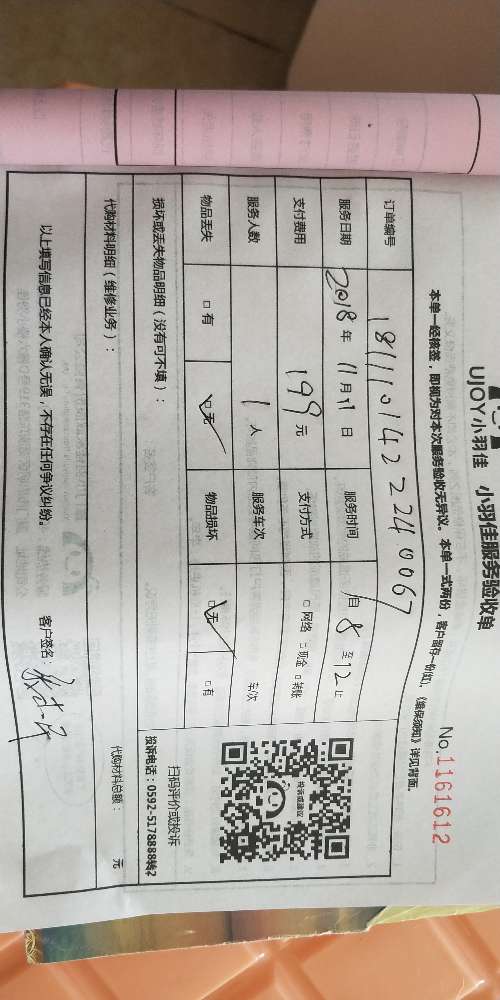 UJOY小羽佳 小羽佳服务验收单
No.1161612
本单一经核签，即视为对本次服务验收无异议。本单一式两份，客户留存一份(红)。《维保须知》详见背面。
订单编号 181110142224 0067
服务日期 2018年 11月 11日 服务时间 自 8 至 12 止
支付费用 199元 支付方式 □网络 □现金 □转账
服务人数 1人 服务车次 车次
物品丢失 □有 □无 物品损坏 □无 □有
扫码评价或投诉
投诉电话：0592-5178888转2
投诉或建议
损坏或丢失物品明细（没有可不填）：
代购材料明细（维修业务）： 代购材料总额： 元
以上填写信息已经本人确认无误，不存在任何争议纠纷。 客户签名：